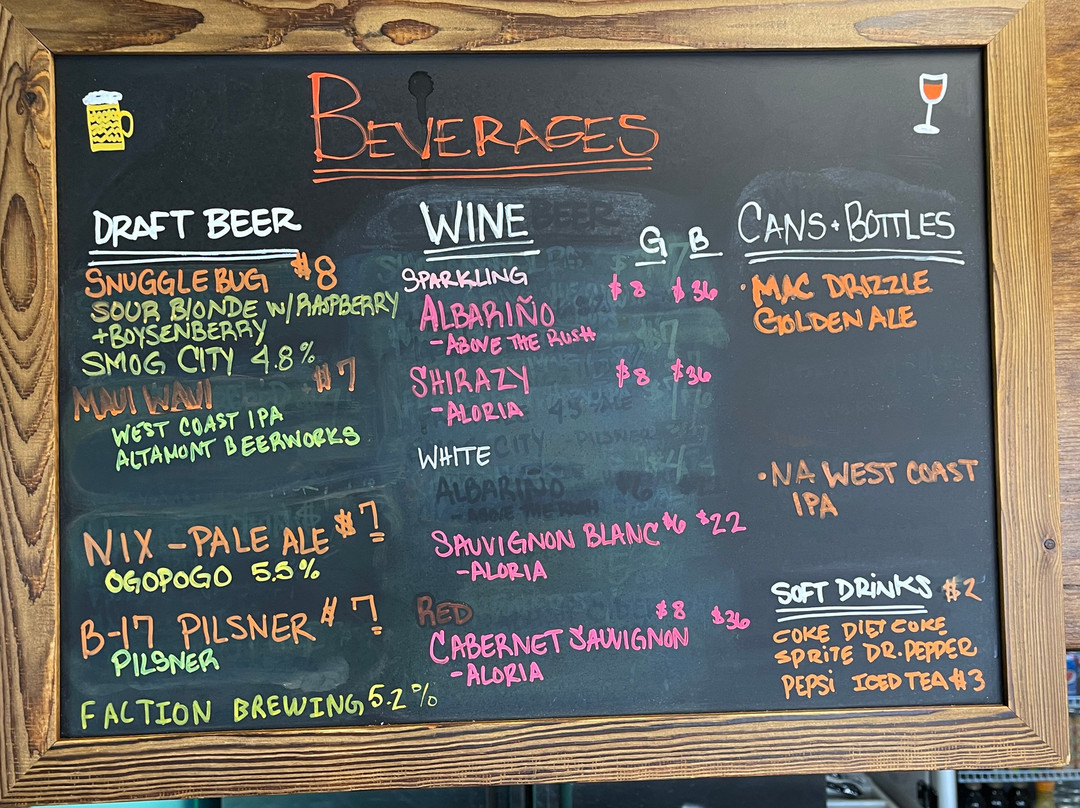 BEVERAGES
DRAFT BEER
SNUGGLEBUG $8
SOUR BLONDE W/RASPBERRY
+BOYSENBERRY
SMOG CITY 4.8%
MAUI WAUI $7
WEST COAST IPA
ALTAMONT BEERWORKS
NIX - PALE ALE $7
OGOPOGO 5.5%
B-17 PILSNER $7
PILSNER
FACTION BREWING 5.2%
WINE
G B
SPARKLING
ALBARIÑO $8 $36
- ABOVE THE RUSH
SHIRAZY $8 $36
- ALORIA
WHITE
ALBARIÑO
SAUVIGNON BLANC $6 $22
- ALORIA
RED
CABERNET SAUVIGNON $8 $36
- ALORIA
CANS + BOTTLES
· MAC DRIZZLE
GOLDEN ALE
· NA WEST COAST
IPA
SOFT DRINKS $2
COKE DIET COKE
SPRITE DR. PEPPER
PEPSI ICED TEA $3